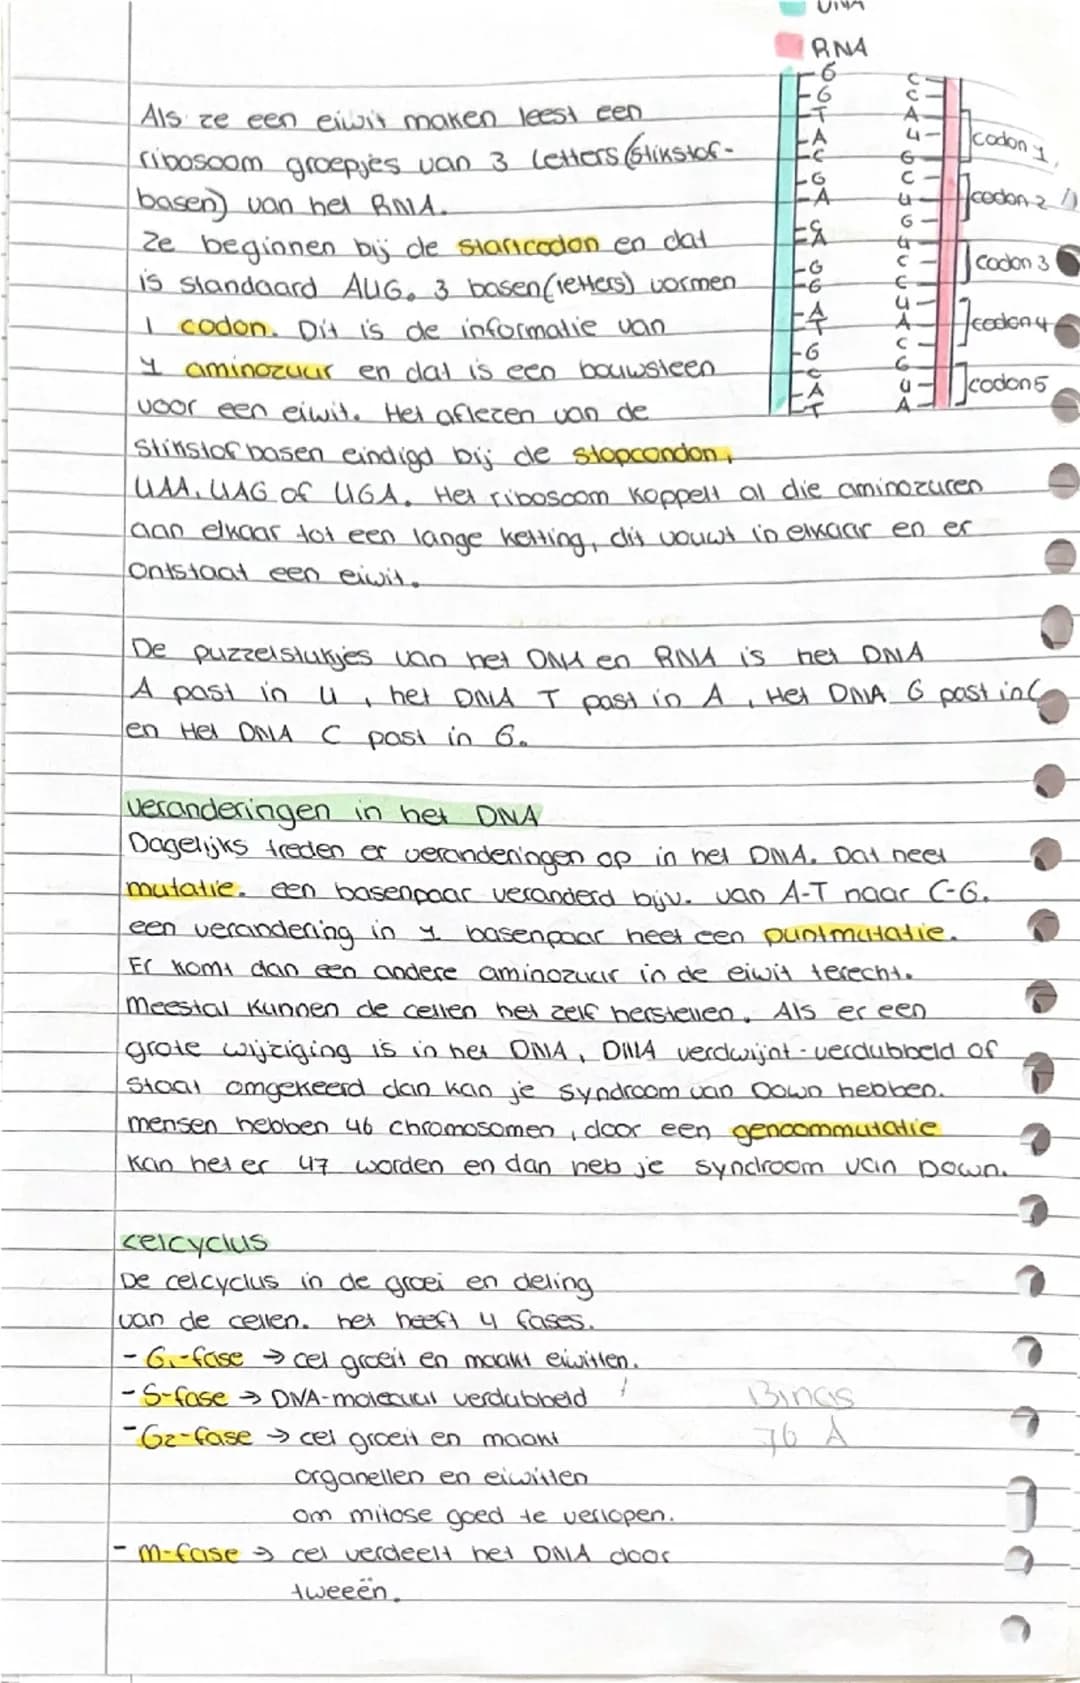 DNA
RNA
G
G
T
A
C
G
A
C
A
G
G
A
T
G
C
A
T
C
C
A
U
G
C
U
G
U
C
C
U
A
C
G
U
A
codon 1
codon 2
codon 3
codon 4
codon 5
Als ze een eiwit maken leest een
ribosoom groepjes van 3 letters (stikstof-
basen) van het RNA.
Ze beginnen bij de startcodon en dat
is standaard AUG. 3 basen(letters) vormen
1 codon. Dit is de informatie van
1 aminozuur en dat is een bouwsteen
voor een eiwit. Het aflezen van de
stikstofbasen eindigd bij de stopcondon,
UAA, UAG of UGA. Het ribosoom koppelt al die aminozuren
aan elkaar tot een lange ketting, dit vouwt in elkaar en er
ontstaat een eiwit.
De puzzelstukjes van het DNA en RNA is het DNA
A past in U, het DNA T past in A, Het DNA G past in C
en Het DNA C past in G.
veranderingen in het DNA
Dagelijks treden er veranderingen op in het DNA. Dat heet
mutatie. een basenpaar veranderd bijv. van A-T naar C-G.
een verandering in 1 basenpaar heet een puntmutatie.
Er komt dan een andere aminozuur in de eiwit terecht.
Meestal kunnen de cellen het zelf herstellen. Als er een
grote wijziging is in het DNA, DNA verdwijnt - verdubbeld of
staat omgekeerd dan kan je syndroom van Down hebben.
mensen hebben 46 chromosomen, door een genoommutatie
kan het er 47 worden en dan heb je syndroom van Down.
celcyclus
De celcyclus in de groei en deling
van de cellen. het heeft 4 fases.
- G1-fase → cel groeit en maakt eiwitten.
- S-fase → DNA-molecuul verdubbeld
- G2-fase → cel groeit en maakt
organellen en eiwitten
om mitose goed te verlopen.
- M-fase → cel verdeelt het DNA door
tweeën.
Binas
76 A